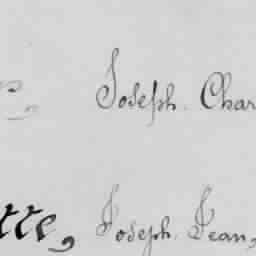 Joseph. Char
tte, Joseph. Jean,